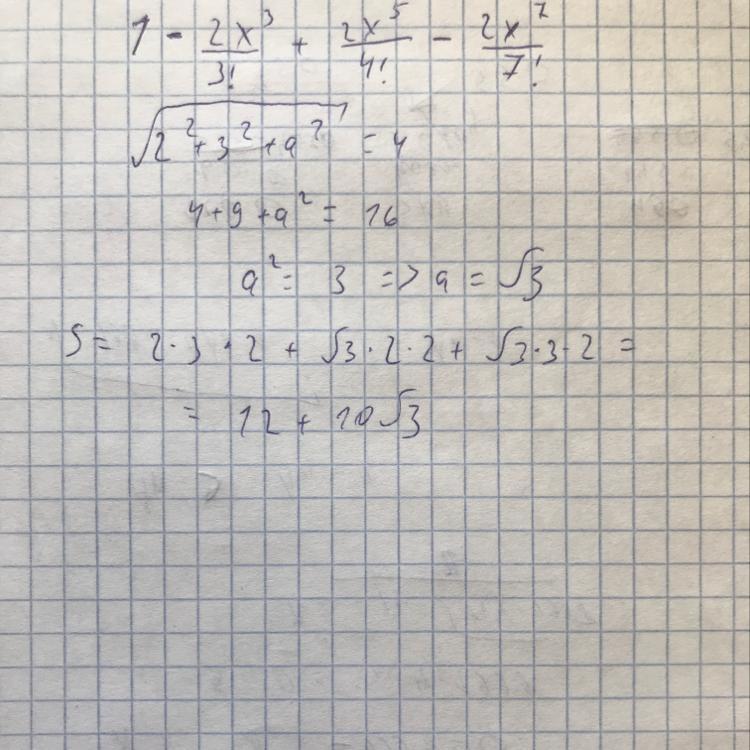 1 - 2x³/3! + 2x⁵/4! - 2x⁷/7!
√(2² + 3² + a²) = 4
4 + 9 + a² = 16
a² = 3 => a = √3
S = 2·3·2 + √3·2·2 + √3·3·2 =
= 12 + 10√3